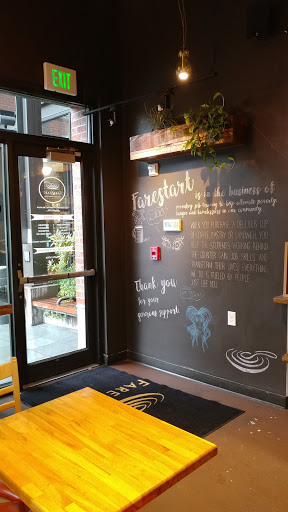 EXIT
Farestart is in the business of
providing job training to help alleviate poverty,
hunger and homelessness in our community.
WHEN YOU PURCHASE A DELICIOUS CUP
OF COFFEE, PASTRY OR SANDWICH, YOU
HELP THE STUDENTS WORKING BEHIND
THE COUNTER GAIN JOB SKILLS AND
TRANSFORM THEIR LIVES. EVERYTHING
WE DO IS FUELED BY PEOPLE
JUST LIKE YOU.
Thank you
for your
generous support.
FARE